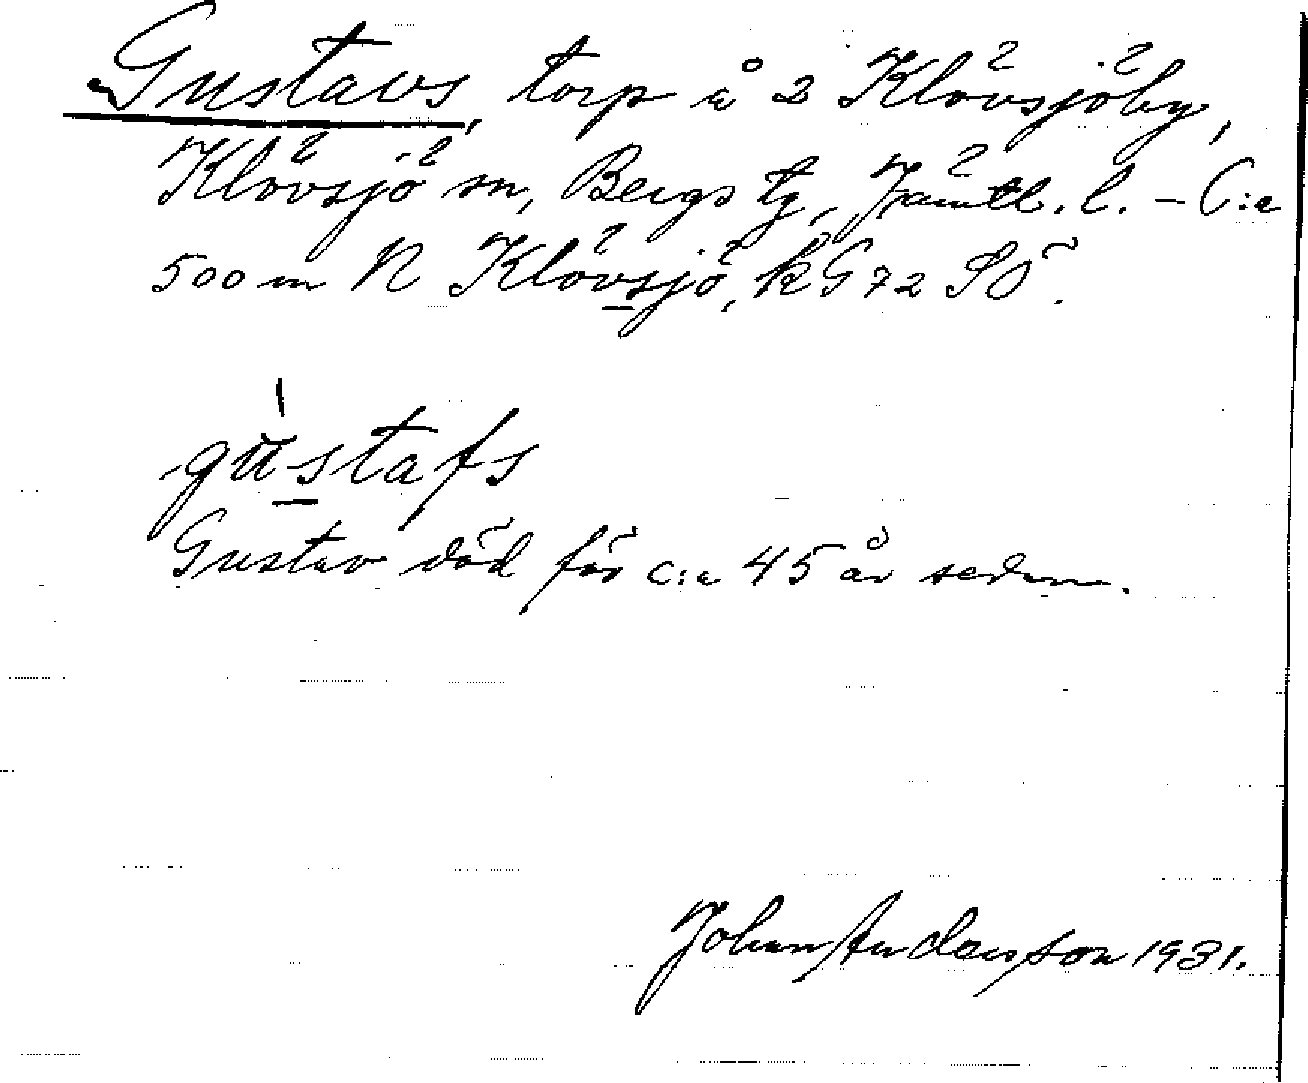 Gustavs, torp å 2 Klövsjöby,
Klövsjö sn, Bergs tg, Jämtl. l. – C:a
500 m N Klövsjö, kG 72 SÖ.
gu̇stafs
Gustav död för c:a 45 år sedan.
Johan Andersson 1931.